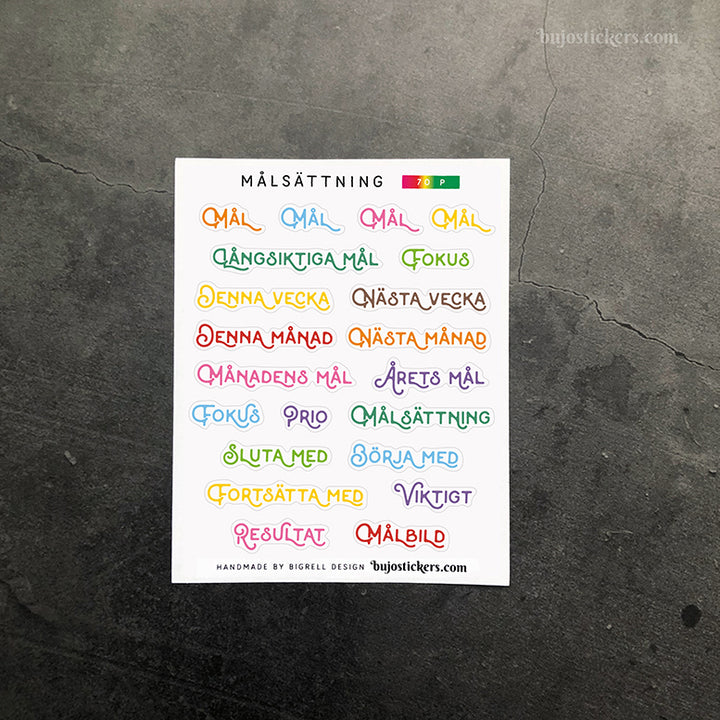 bujostickers.com
MÅLSÄTTNING 70 P
MÅL MÅL MÅL MÅL
LÅNGSIKTIGA MÅL FOKUS
DENNA VECKA NÄSTA VECKA
DENNA MÅNAD NÄSTA MÅNAD
MÅNADENS MÅL ÅRETS MÅL
FOKUS PRIO MÅLSÄTTNING
SLUTA MED BÖRJA MED
FORTSÄTTA MED VIKTIGT
RESULTAT MÅLBILD
HANDMADE BY BIGRELL DESIGN bujostickers.com